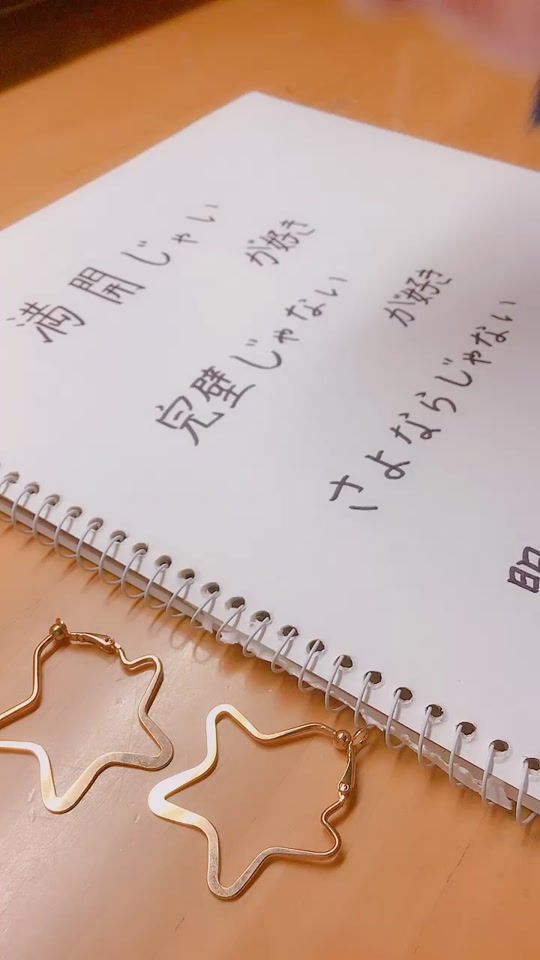 満開じゃい
が好き
完璧じゃない
が好き
さよならじゃない